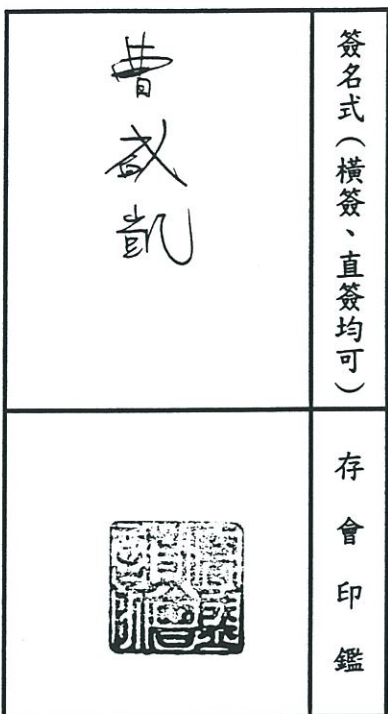 簽名式(橫簽、直簽均可)
曹盛凱
存會印鑑